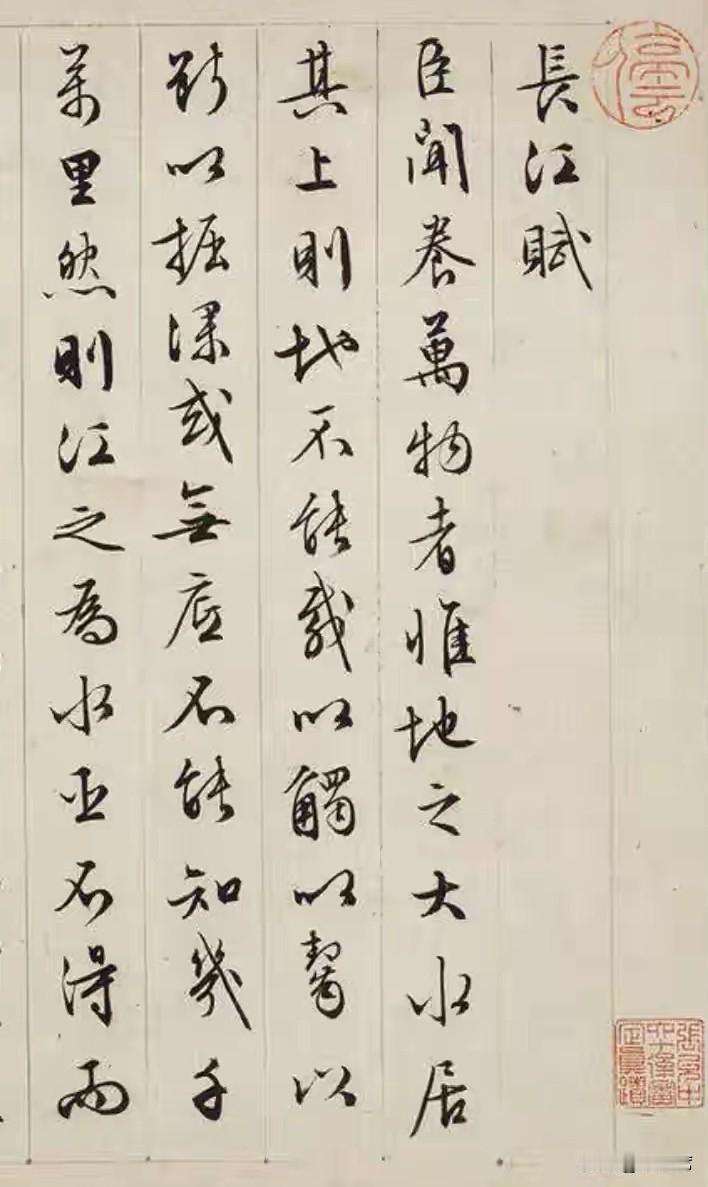 長江賦
臣聞養萬物者惟地之大水居
其上則地不能載以觸以齧以
斷以掘深或無底不能知幾千
萬里然則江之為水亞不得而
停雲